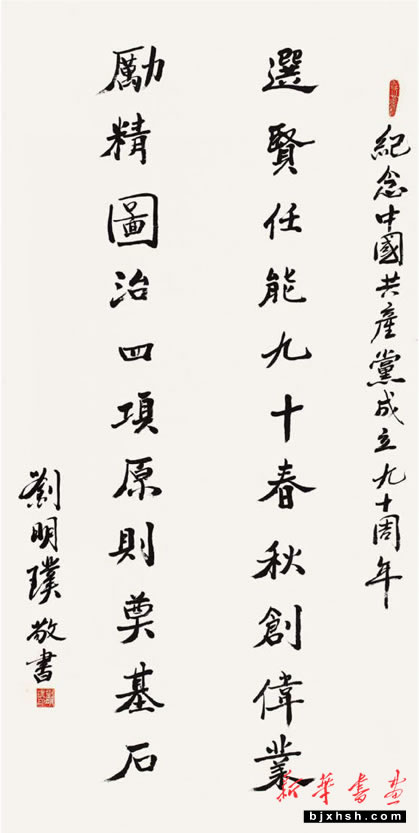 紀念中國共產黨成立九十周年
選賢任能九十春秋創偉業
勵精圖治四項原則奠基石
劉明璞敬書
新華書畫
bjxhsh.com